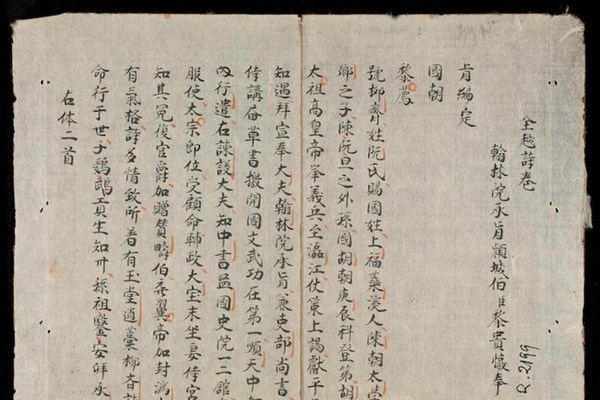 全越詩卷
翰林院承旨穎城伯臣黎貴惇奉
旨編定
國朝
黎廌
號抑齋姓阮氏賜國姓上福蘂溪人陳朝太宰
卿之子陳阮旦之外孫國胡朝庚辰科登第胡
太祖高皇帝举義兵至瀘江仗策上謁獻平
知遇拜宣奉大夫翰林院承旨兼吏部尚書
侍講草書撽開國文武功在第一順天中
內行遣右諫議大夫知中書監國史院一二館
服使太宗即位受顧命輔政大宝末坐妻侍宮
知其冤復官爵加贈賛疇伯帝加封
有氣格詩多情致所着有玉堂遺藁抑斉詩
命行于世子鸚鵡貢生知州孫祖鑒安拜承
右体二首
R.2199